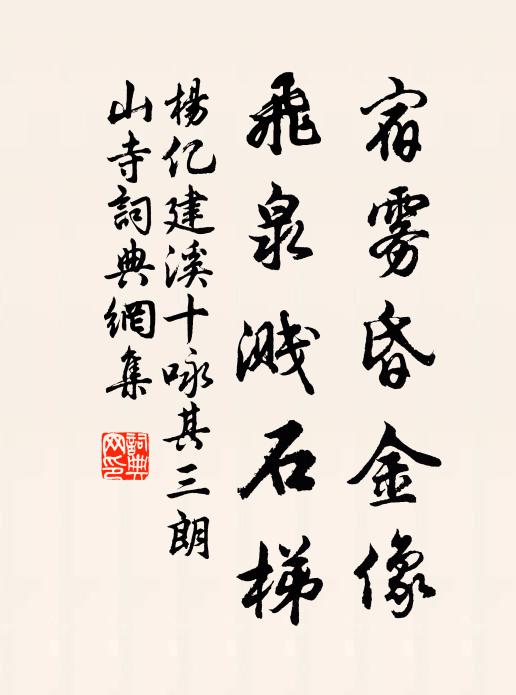 宿雾昏金像
飛泉溅石梯
楊亿建溪十咏其三朗
山寺詞典網集
詞典网印